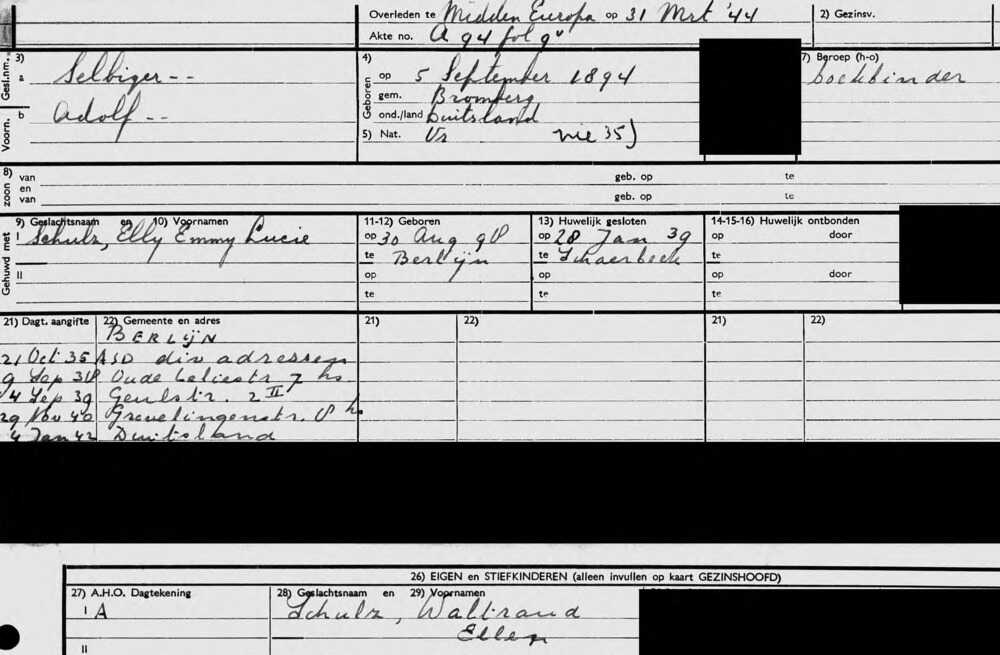 Overleden te Midden Europa op 31 Mrt '44
2) Gezinsv.
Akte no. A 94 fol 9v
Gesl.nm.
3)
a Selbiger--
Voorn.
b Adolf --
4)
Geboren
op 5 September 1894
gem. Bromberg
ond./land Duitsland
5) Nat. Vr nie 35)
7) Beroep (h-o)
boekbinder
8)
zoon en
van geb. op te
en
van geb. op te
Gehuwd met
9) Geslachtsnaam en 10) Voornamen
I Schulz, Elly Emmy Lucie
II
11-12) Geboren
op 30 Aug 98
te Berlijn
op
te
13) Huwelijk gesloten
op 28 Jan 39
te Schaerbeek
op
te
14-15-16) Huwelijk ontbonden
op door
te
op door
te
21) Dagt. aangifte 22) Gemeente en adres
BERLIJN
21 Oct 35 ASD div adressen
9 Sep 38 Oude Leliestr 7 hs
4 Sep 39 Geulstr. 2 II
29 Nov 40 Grevelingenstr. 8 hs
4 Jan 42 Duitsland
21) 22)
21) 22)
26) EIGEN en STIEFKINDEREN (alleen invullen op kaart GEZINSHOOFD)
27) A.H.O. Dagtekening
28) Geslachtsnaam en 29) Voornamen
I A Schulz, Waltraud
Ellen
II